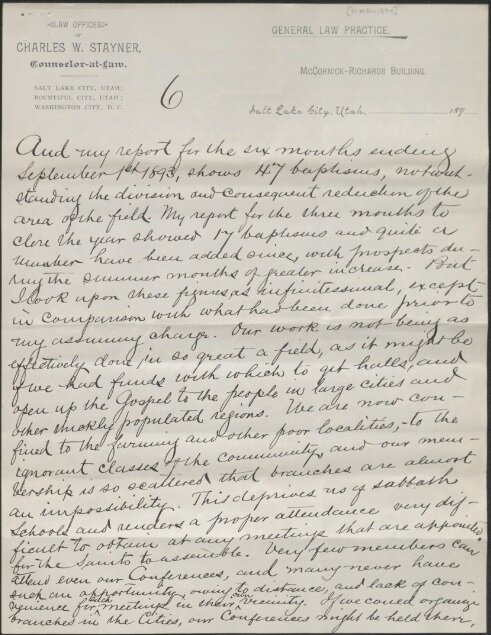 [31 MAR 1894]
LAW OFFICES
OF
CHARLES W. STAYNER,
Counselor-at-Law.
SALT LAKE CITY, UTAH;
BOUNTIFUL CITY, UTAH;
WASHINGTON CITY, D. C.
GENERAL LAW PRACTICE.
McCORNICK-RICHARDS BUILDING.
6
Salt Lake City, Utah, 189
And my report for the six months ending
September 1st 1893, shows 47 baptisms, notwith-
standing the division and consequent reduction of the
area of the field. My report for the three months to
close the year showed 17 baptisms and quite a
number have been added since, with prospects du-
ring the summer months of greater increase. But
I look upon these figures as infinitessimal, except
in comparison with what had been done prior to
my assuming charge. Our work is not being as
effectively done, in so great a field, as it might be
if we had funds with which to get halls, and
open up the Gospel to the people in large cities and
other thickly populated regions. We are now con-
fined to the farming and other poor localities, - to the
ignorant classes of the community, and our mem-
bership is so scattered that branches are almost
an impossibility. This deprives us of sabbath
schools and renders a proper attendance very dif-
ficult to obtain at any meetings that are appointed
for the Saints to assemble. Very few members can
attend even our Conferences, and many never have
such an opportunity, owing to distance, and lack of con-
venience for meetings in their own vicinity. If we could organize
branches in the Cities, our Conferences might be held there,